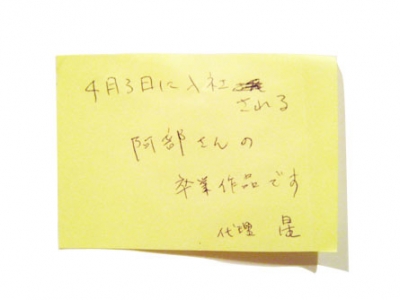 4月3日に入社
される
阿部さんの
卒業作品です
代理